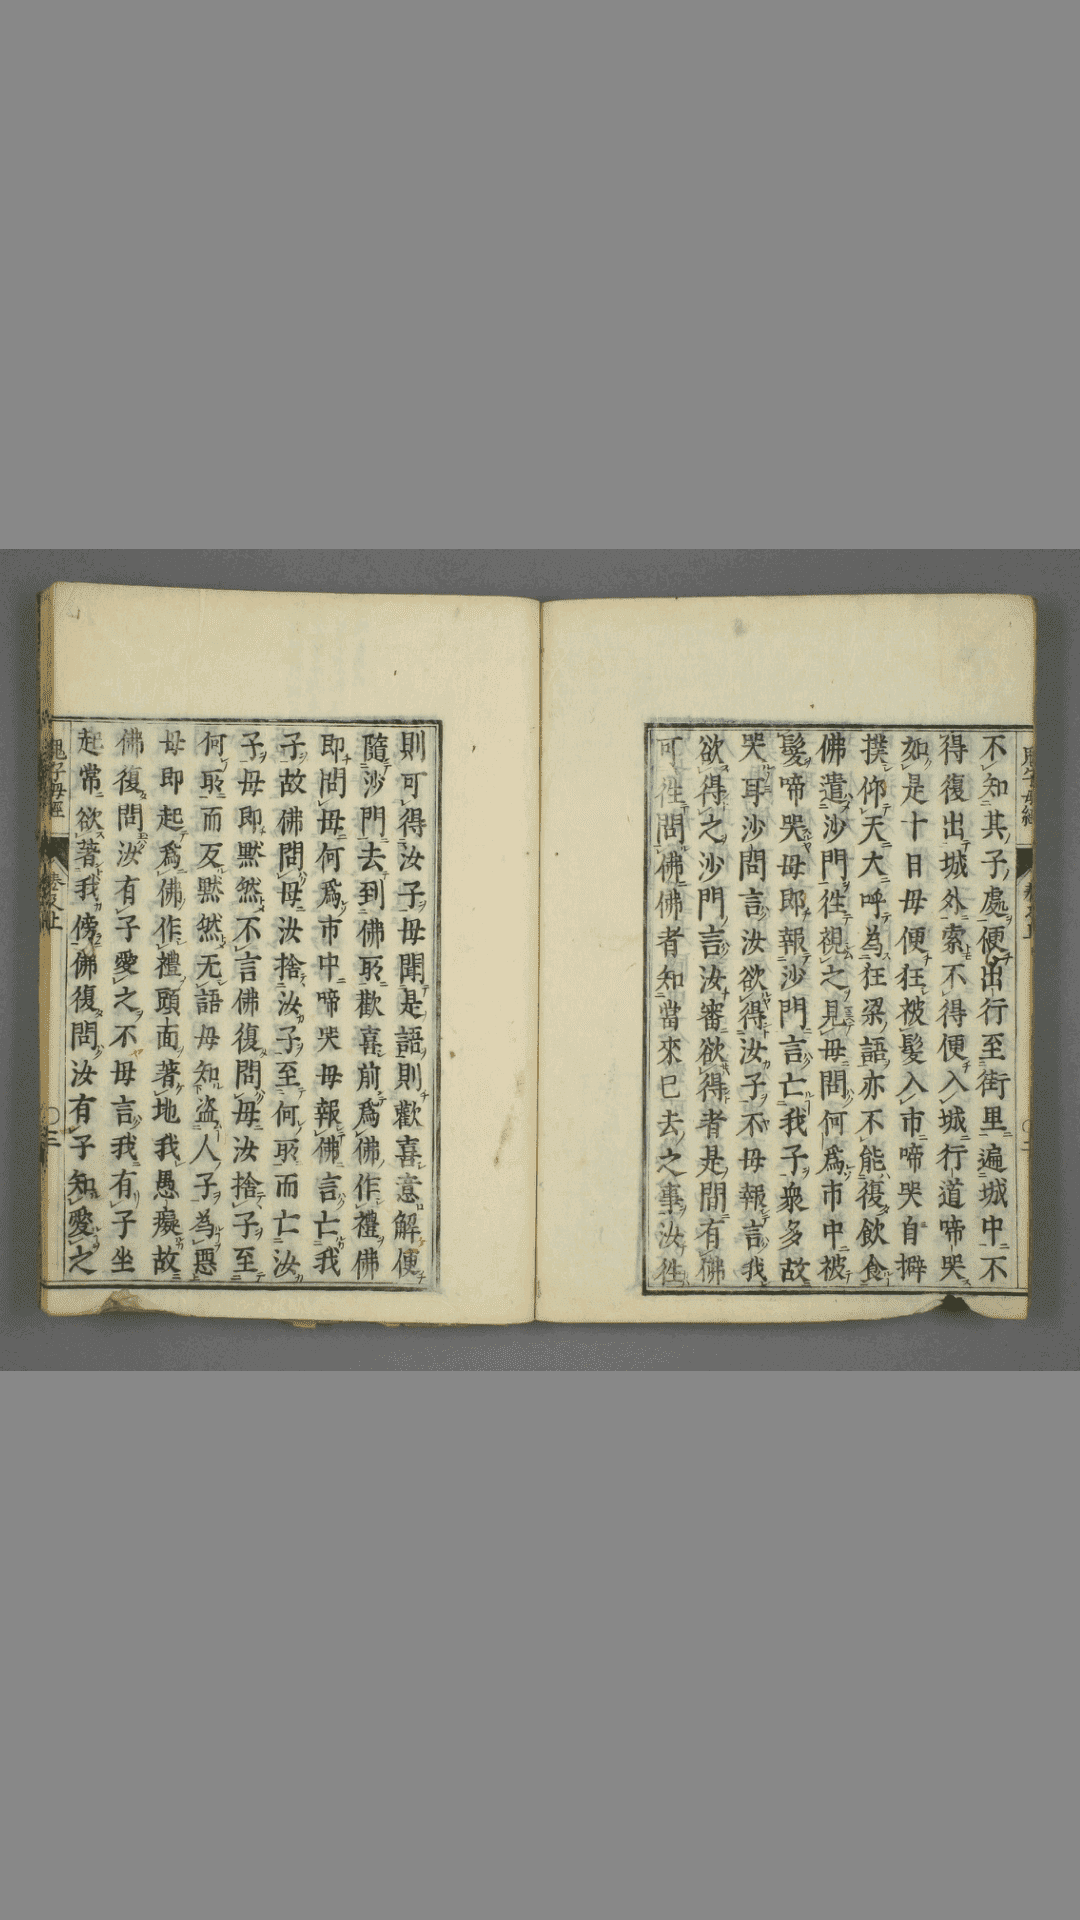 不知其子處便出行至街里遍城中不
得復出城外索不得便入城行道啼哭
如是十日母便狂被髮入市啼哭自擗
撲仰天大呼為狂梁語亦不能復飲食
佛遣沙門徃視之見母問何爲市中被
髮啼哭母即報沙門言亡我子衆多故
哭耳沙問言汝欲得汝子不母報言我
欲得之沙門言汝審欲得者是間有佛
可徃問佛佛者知當來已去之事汝徃
則可得汝子母聞是語則歡喜意解便
隨沙門去到佛所歡喜前爲佛作禮佛
即問母何爲市中啼哭母報佛言亡我
子故佛問母汝捨汝子至何所而亡汝
子母即默然不言佛復問母汝捨子至
何所而亙默然无語母知盗人子為惡
母即起爲佛作禮頭面著地我愚癡故
佛復問汝有子愛之不母言我有子坐
起常欲著我傍佛復問汝有子知愛之
鬼子母經
〇三